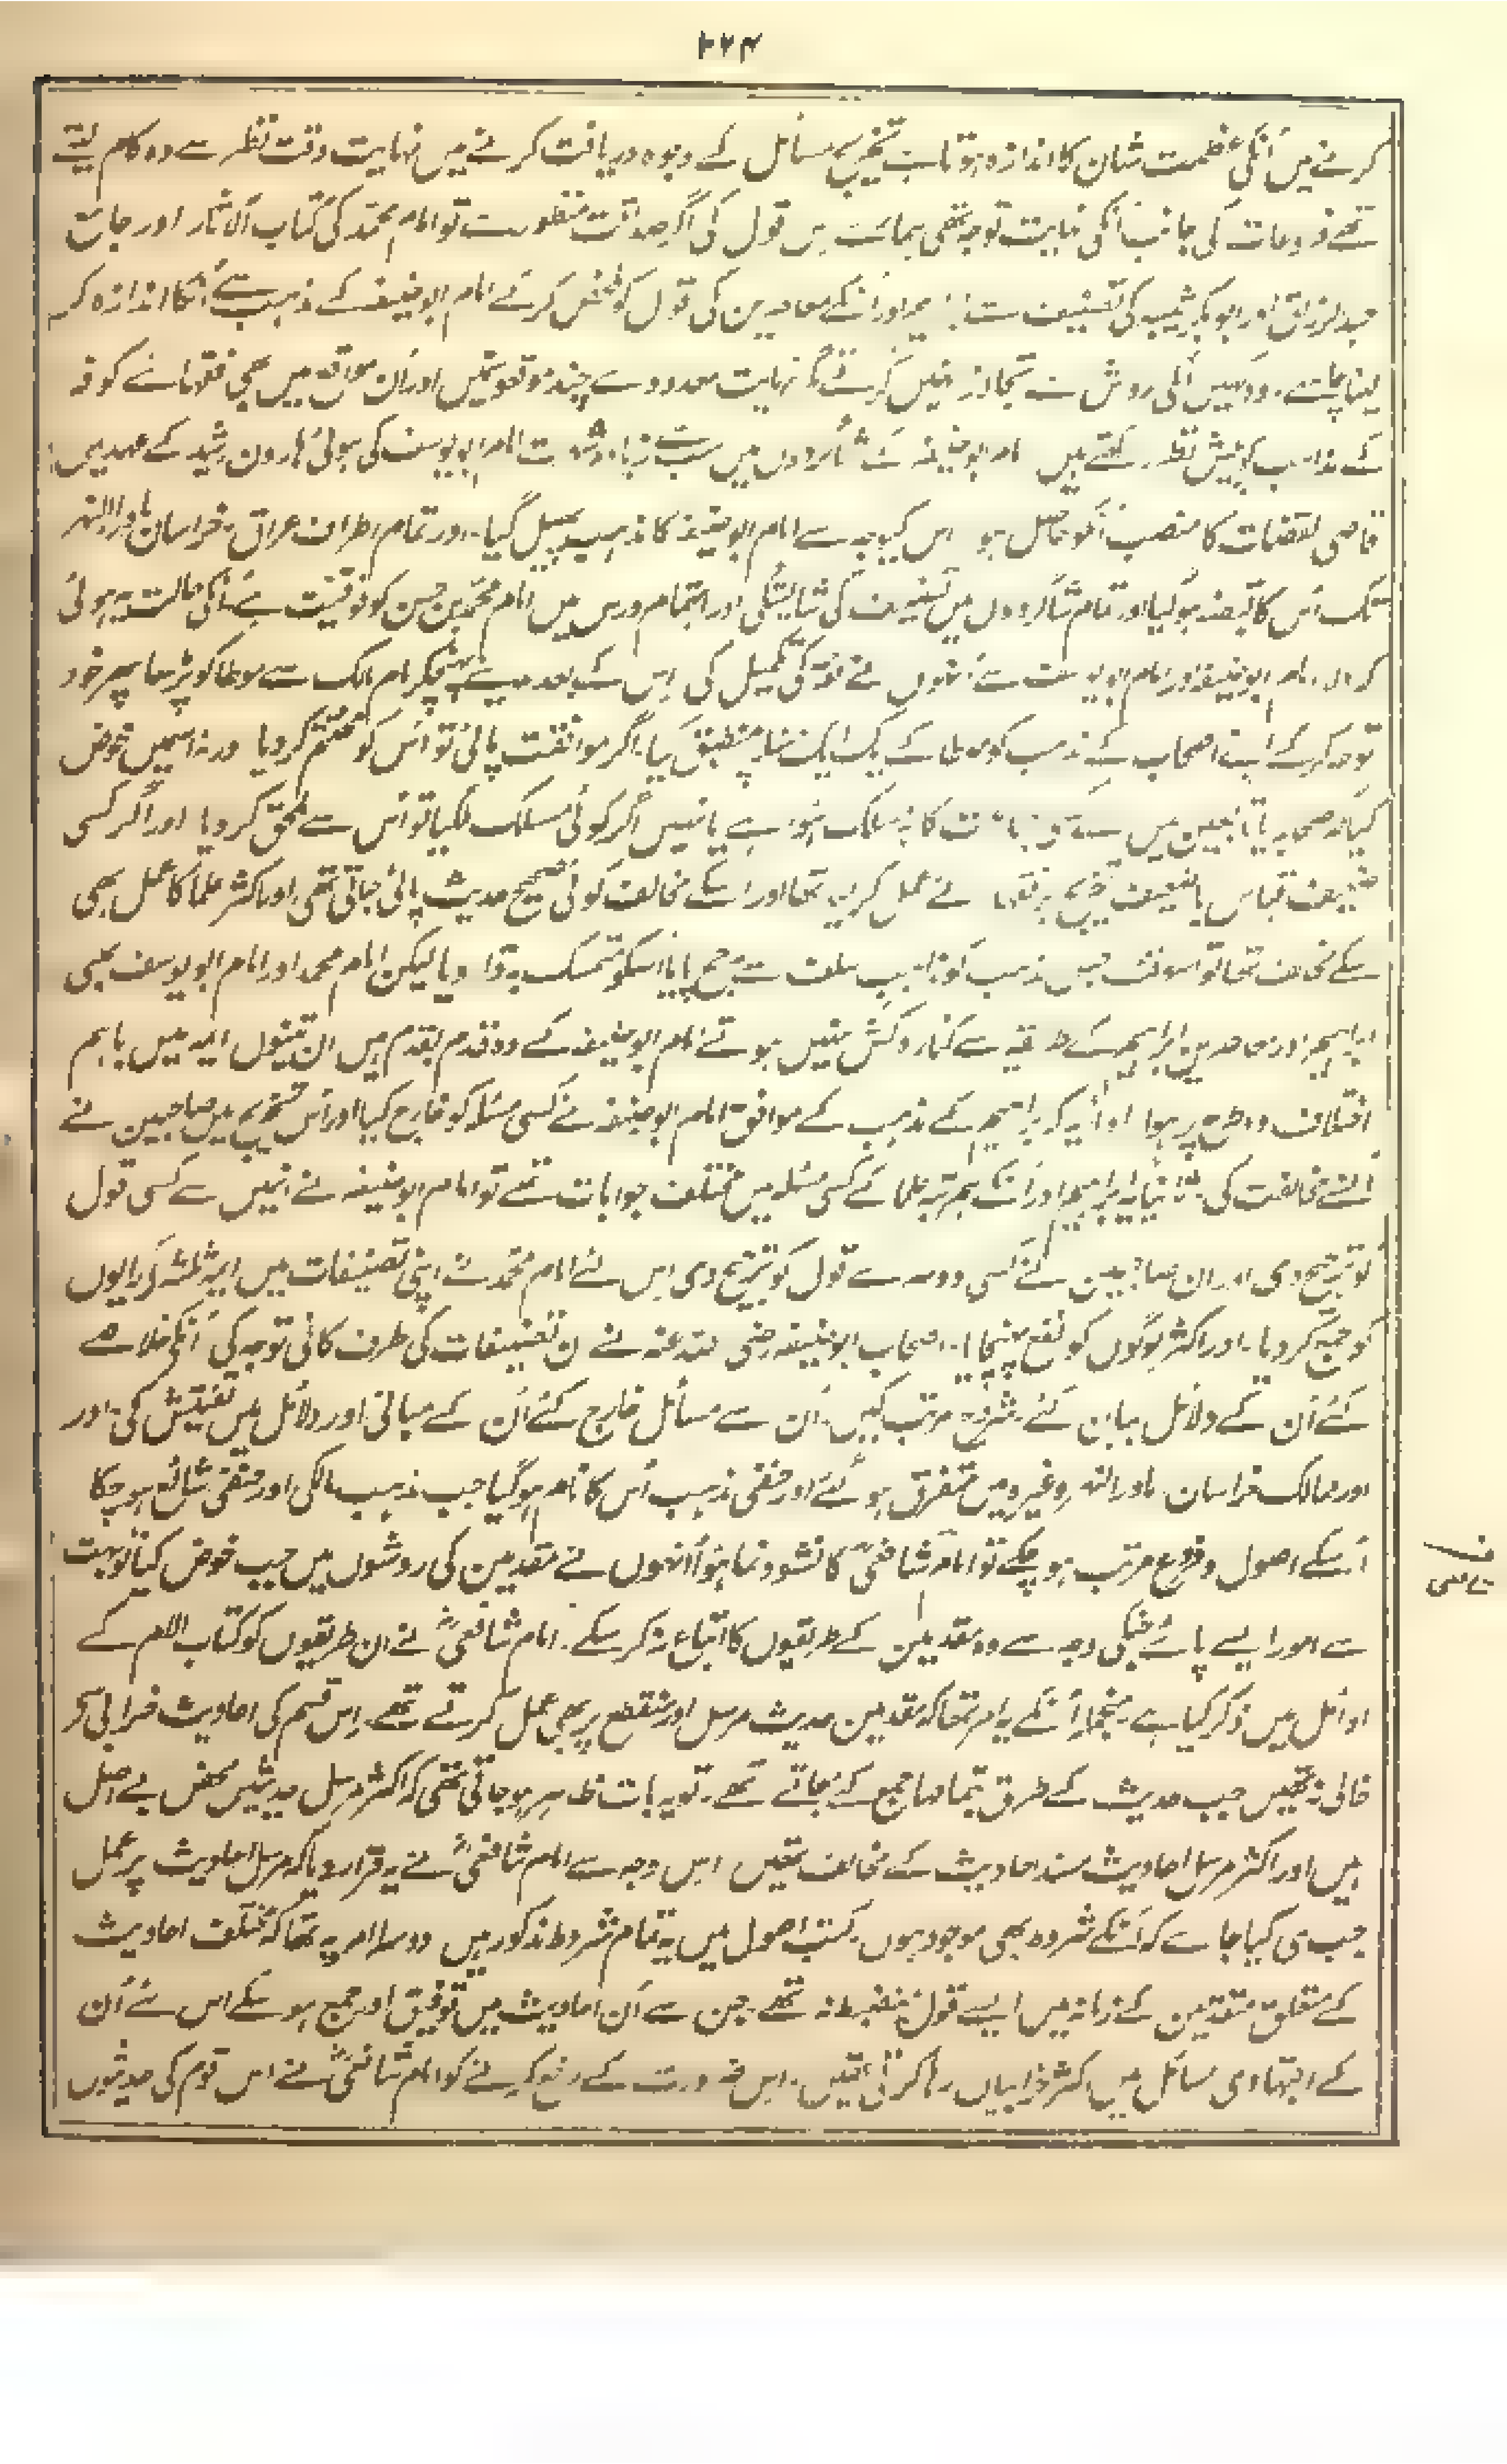 ۲۲۴
کرنے میں اُنکی عظمت شان کا اندازہ ہوتا ہے تخریج مسائل کے وجوہ دریافت کرنے میں نہایت دقت نظر سے وہ کام لیتے
تھے فروعات کی جانب اُنکی نہایت توجہ تھی ہمارے اس قول کی اگر صداقت منظور ہے تو امام محمد کی کتاب الآثار اور جامع
عبدالرزاق اور ابوبکر شیبہ کی تصنیف سے ابراہیم اور اُنکے معاصرین کی قول کو ملخص کرنے امام ابوحنیفہ کے مذہب سے اُنکا اندازہ کر
لینا چاہئے۔ وہ کہیں اُنکی روش سے تجاوز نہیں کرتے مگر نہایت معدودے چند موقعوں میں اور اُن مواقع میں بھی فقہائے کوفہ
کے مذاہب کو پیش نظر رکھتے ہیں امام ابوحنیفہ کے شاگردوں میں سب سے زیادہ شہرت امام ابویوسف کی ہوئی ہارون رشید کے عہد میں
قاضی القضات کا منصب اُنکو حاصل ہوا اس کیوجہ سے امام ابوحنیفہ کا مذہب پھیل گیا۔ اور تمام اطراف عراق۔ خراسان ماوراءالنہر
تک اُس کا قبضہ ہو گیا اور تمام شاگردوں میں تصنیف کی شایستگی اور اہتمام درس میں امام محمد بن حسن کو فوقیت ہے اُنکی حالت یہ ہوئی
کہ اول امام ابوحنیفہ اور امام ابویوسف سے اُنہوں نے فقہ کی تکمیل کی اس کے بعد مدینے پہنچکر امام مالک سے موطا کو پڑھا پھر خود
توجہ کرکے اپنے اصحاب کے مذہب کو موطا کے ایک ایک مسئلہ پر منطبق کیا۔ اگر موافقت پائی تو اُس کو مستحکم کر دیا ورنہ اسمیں خوض
کیا کہ صحابہ یا تابعین میں سے کسی جماعت کا یہ مسلک ہوا ہے یا نہیں اگر کوئی مسلک ملگیا تو اُس سے ملحق کر دیا اور اگر کسی
ضعیف قیاس یا ضعیف تخریج پر فقہا نے عمل کر لیا تھا اور اسکے مخالف کوئی صحیح حدیث پائی جاتی تھی اور اکثر علما کا عمل بھی
اسکے مخالف تھا تو اسوقت جس مذہب کو مذاہب سلف سے مرجح پایا اُسکو متمسک بہ قرار دیا لیکن امام محمد اور امام ابویوسف بھی
ابراہیم اور معاصرین ابراہیم کے طریقہ سے کنارہ کش نہیں ہوتے امام ابوحنیفہ کے وہ قدم بقدم ہیں ان تینوں ائمہ میں باہم
اختلاف دو طرح پر ہوا اولاً یہ کہ ابراہیم کے مذہب کے موافق امام ابوحنیفہ نے کسی مسئلہ کو خارج کیا اور اُس تخریج میں صاحبین نے
اُنسے مخالفت کی۔ ثانیاً یہ ابراہیم اور اُنکے ہم رتبہ علما کے کسی مسئلہ میں مختلف جوابات تھے تو امام ابوحنیفہ نے انہیں سے کسی قول
کو ترجیح دی اور ان صاحبین نے کسی دوسرے قول کو ترجیح دی اس لئے امام محمد نے اپنی تصنیفات میں ائمہ ثلثہ کی رایوں
کو جمع کر دیا۔ اور اکثر لوگوں کو نفع پہنچایا۔ اصحاب ابوحنیفہ رضی اللہ عنہ نے ان تصنیفات کی طرف کافی توجہ کی اُنکے خلاصے
کئے اُن کے دلائل بیان کئے۔ شرحیں مرتب کیں۔ اُن سے مسائل خارج کئے اُن کے مبانی اور دلائل میں تفتیش کی۔ اور
اور ممالک خراسان ماوراءالنہر وغیرہ میں متفرق ہو گئے اور حنفی مذہب اُس کا نام ہو گیا جب مذہب مالکی اور حنفی شائع ہو چکا
اُسکے اصول و فروع مرتب ہو چکے تو امام شافعیؒ کا نشو و نما ہوا اُنہوں نے متقدمین کی روشوں میں جب خوض کیا تو بہت
سے امور ایسے پائے جنکی وجہ سے وہ متقدمین کے طریقوں کا اتباع نہ کر سکے۔ امام شافعیؒ نے ان طریقوں کو کتاب الام کے
اوائل میں ذکر کیا ہے۔ منجملہ اُنکے یہ امر تھا کہ متقدمین حدیث مرسل اور منقطع پر بھی عمل کرتے تھے۔ اس قسم کی احادیث خرابی سے
خالی نہ تھیں جب حدیث کے طرق تمامہا جمع کئے جاتے تھے۔ تو یہ بات ظاہر ہو جاتی تھی کہ اکثر مرسل حدیثیں محض بے اصل
ہیں اور اکثر مرسل احادیث مسند احادیث کے مخالف تھیں اس وجہ سے امام شافعیؒ نے یہ قرار دیا کہ مرسل احادیث پر عمل
جب ہی کیا جائے کہ اُنکے شروط بھی موجود ہوں۔ کتب اصول میں یہ تمام شروط مذکور ہیں دوسرا امر یہ تھا کہ مختلف احادیث
کے متعلق متقدمین کے زمانہ میں ایسے قواعد منضبط نہ تھے۔ جن سے اُن احادیث میں توفیق اور جمع ہو سکے اس لئے اُن
کے اجتہادی مسائل میں اکثر خرابیاں رہا کرتی تھیں۔ اس ضرورت کے رفع کرنے کو امام شافعیؒ نے اس قوم کی حدیثوں